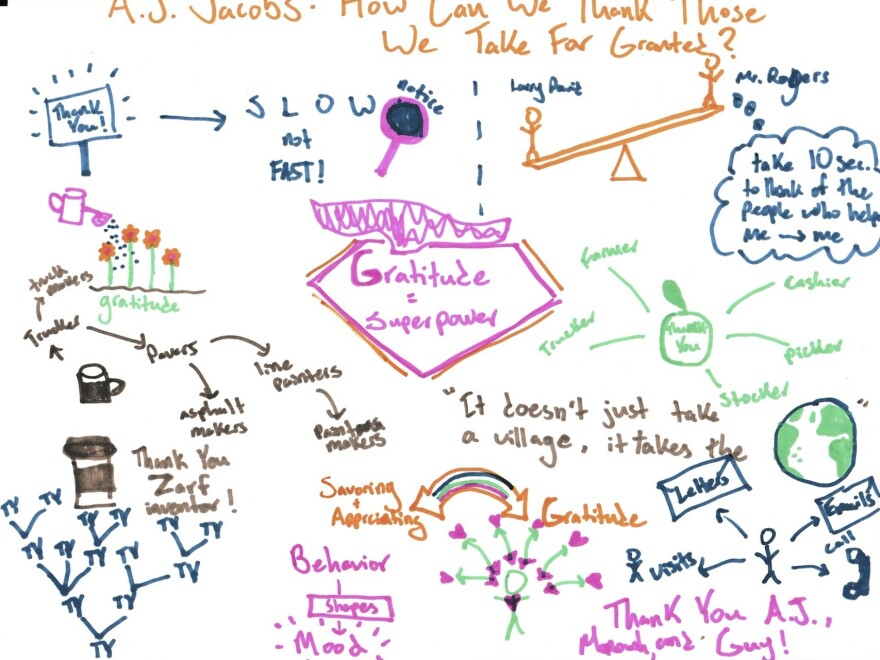 A.J. Jacobs: How Can We Thank Those
We Take For Granted?
Thank
You!
SLOW
not
FAST!
notice
Larry
Mr. Rogers
take 10 sec.
to think of the
people who help
me → me
gratitude
Gratitude
=
Superpower
farmer
Trucker
Thank
You
cashier
picker
stocker
truck
makers
Trucker
Pavers
line
painters
asphalt
makers
makers
Thank You
Zarf
inventor!
"It doesn't just take
a village, it takes the
"
TY
TY
TY
TY
TY
TY
TY
TY
TY
TY
TY
TY
TY
Savoring
+
Appriciating
Gratitude
Behavior
shapes
Mood
Letters
Emails
visits
call
Thank You A.J.,
and Guy!